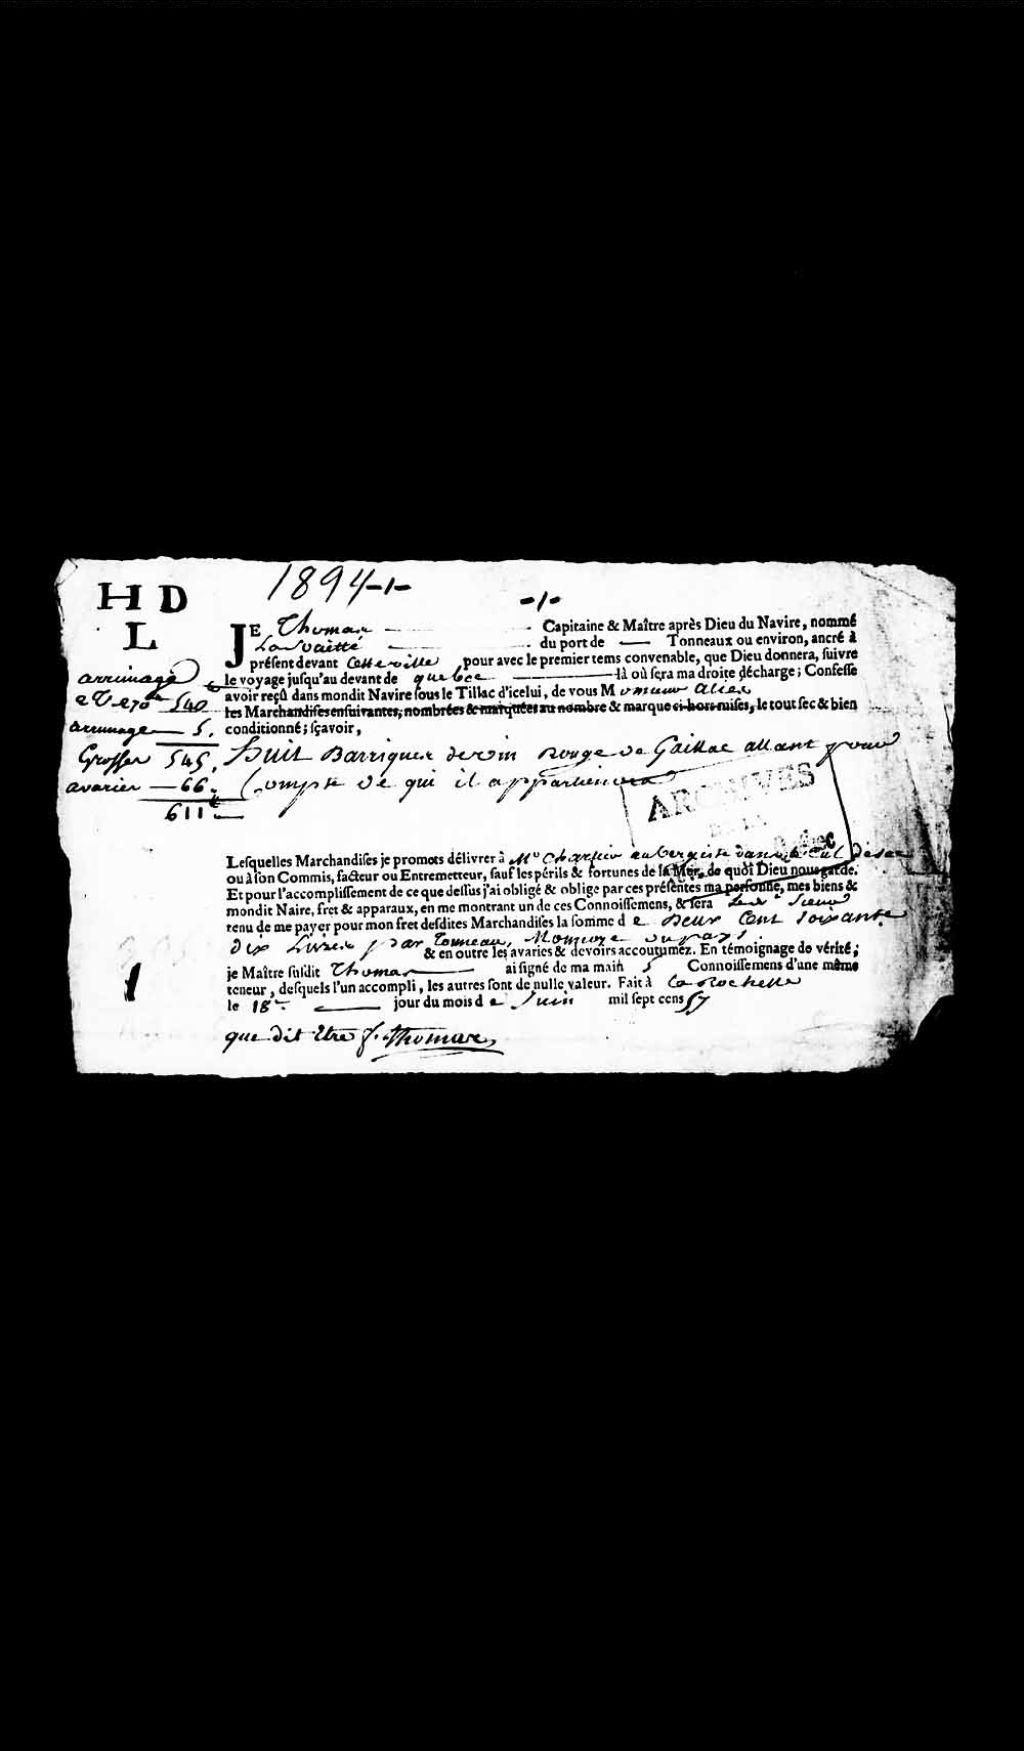 1894-1-
-1-
H D
L
JE Thomas Capitaine & Maître après Dieu du Navire, nommé
du port de Tonneaux ou environ, ancré à
présent devant Cette ville pour avec le premier tems convenable, que Dieu donnera, suivre
le voyage jusqu'au devant de quebec là où sera ma droite décharge; Confesse
avoir reçû dans mondit Navire sous le Tillac d'icelui, de vous M
les Marchandises ensuivantes, nombrées & marquées au nombre & marque ci-hors mises, le tout sec & bien
conditionné; sçavoir,
arrimage
540
arrimage 5.
545
avaries 66
611
huit Barriques de vin Rouge de Gaillac allant pour
Compte de qui il appartiendra
ARCHIVES
DE LA
Lesquelles Marchandises je promets délivrer à Mr Chartier aubergiste dans le Cul de sac
ou à son Commis, facteur ou Entremetteur, sauf les périls & fortunes de la Mer, de quoi Dieu nous garde.
Et pour l'accomplissement de ce que dessus j'ai obligé & oblige par ces présentes ma personne, mes biens &
mondit Naire, fret & apparaux, en me montrant un de ces Connoissemens, & sera Sieur
tenu de me payer pour mon fret desdites Marchandises la somme d e Deux Cent soixante
dix Livres par Tonneau, Monnoye du pays
& en outre les avaries & devoirs accoutumez. En témoignage de vérité;
je Maître susdit Thomas ai signé de ma main 5 Connoissemens d'une même
teneur, desquels l'un accompli, les autres sont de nulle valeur. Fait à La Rochelle
le 18e jour du mois d e Juin mil sept cens 57
que dit Etre f. Thomas
1